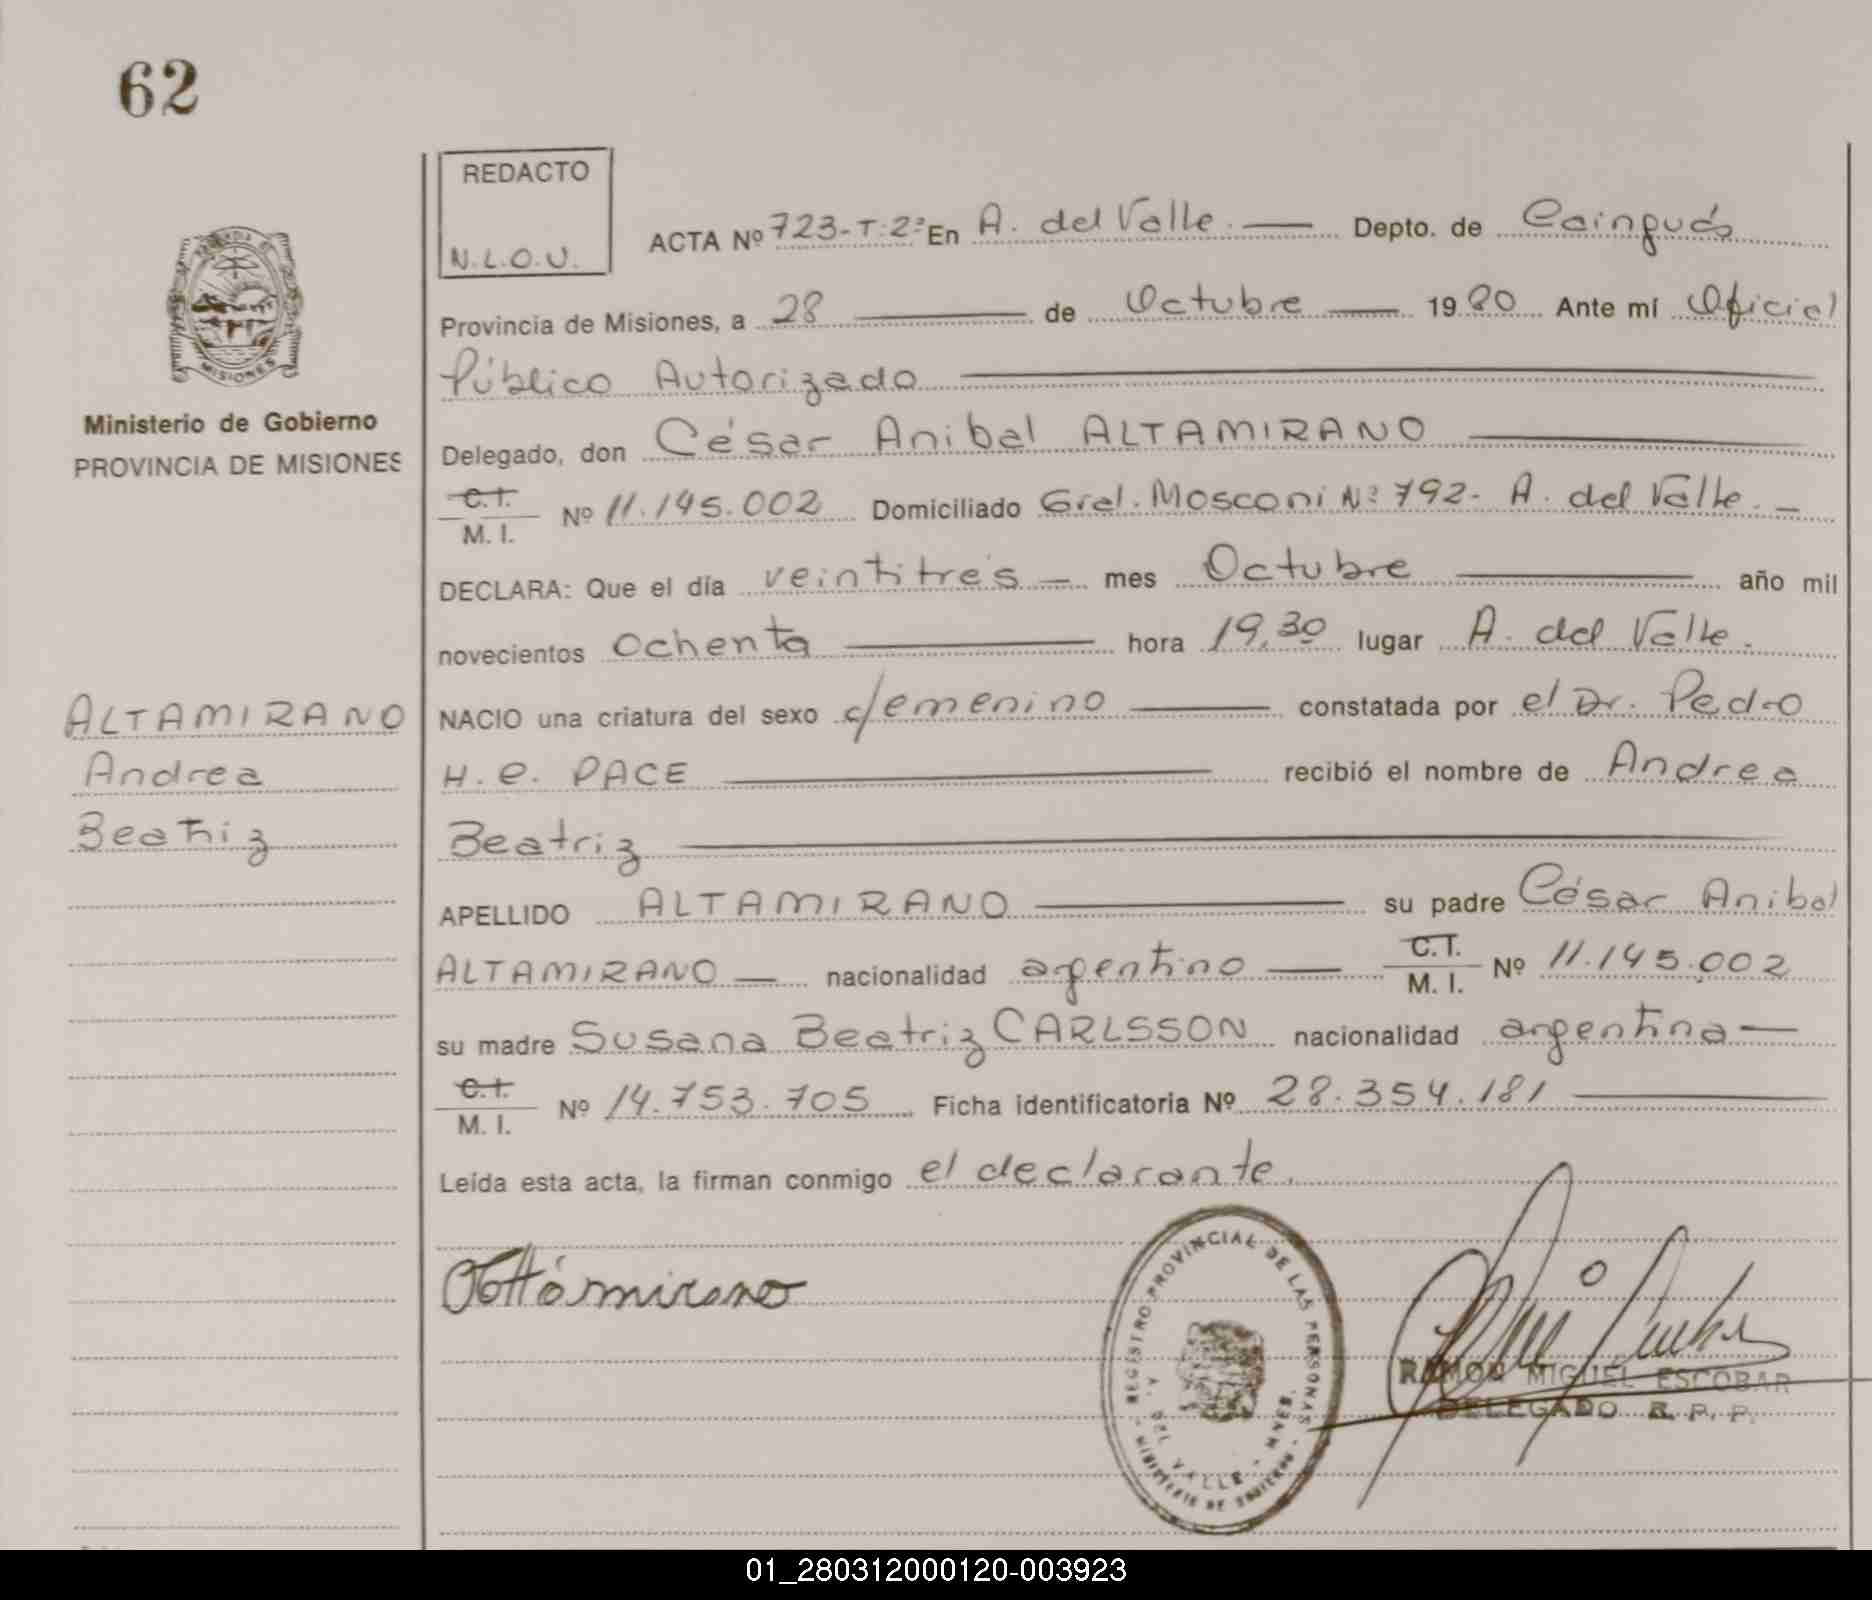 62
REDACTO
N.L.O.U.
ACTA Nº 723-T:2º En A. del Valle. Depto. de Cainguás
Provincia de Misiones, a 28 de Octubre 1980. Ante mí Oficial
Público Autorizado
MISIONES
Ministerio de Gobierno
PROVINCIA DE MISIONES
Delegado, don César Anibal ALTAMIRANO
C.I.
M. I. Nº 11.145.002 Domiciliado Gral. Mosconi Nº 792- A. del Valle. -
DECLARA: Que el día veintitrés mes Octubre año mil
novecientos ochenta hora 19,30 lugar A. del Valle.
ALTAMIRANO
Andrea
Beatriz
NACIO una criatura del sexo femenino constatada por el Dr. Pedro
H. C. PACE recibió el nombre de Andrea
Beatriz
APELLIDO ALTAMIRANO su padre César Anibal
ALTAMIRANO nacionalidad argentino C.T. M. I. Nº 11.145.002
su madre Susana Beatriz CARLSSON nacionalidad argentina
C.I.
M. I. Nº 14.753.705 Ficha identificatoria Nº 28.354.181
Leída esta acta, la firman conmigo el declarante.
Altamirano
REGISTRO PROVINCIAL DE LAS PERSONAS
A. DEL VALLE - MNES.
MINISTERIO DE GOBIERNO
RAMON MIGUEL ESCOBAR
DELEGADO R. P. P.
01_280312000120-003923